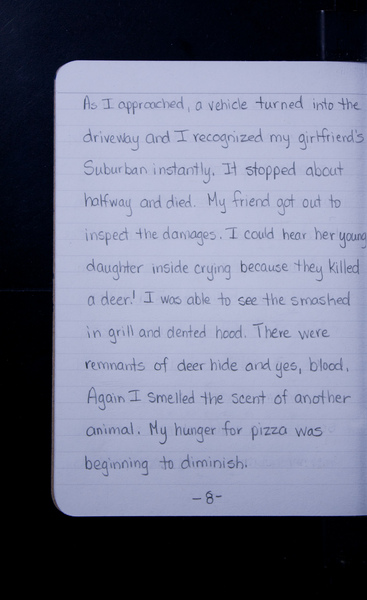 As I approached, a vehicle turned into the
driveway and I recognized my girlfriend's
Suburban instantly. It stopped about
halfway and died. My friend got out to
inspect the damages. I could hear her young
daughter inside crying because they killed
a deer! I was able to see the smashed
in grill and dented hood. There were
remnants of deer hide and yes, blood.
Again I smelled the scent of another
animal. My hunger for pizza was
beginning to diminish.
-8-